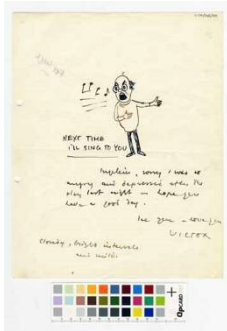 NEXT TIME
I'LL SING TO YOU
sorry I was so
angry and depressed after the
play last night hope you
have a good day.
love you
VICTOR
cloudy, bright intervals
and milder